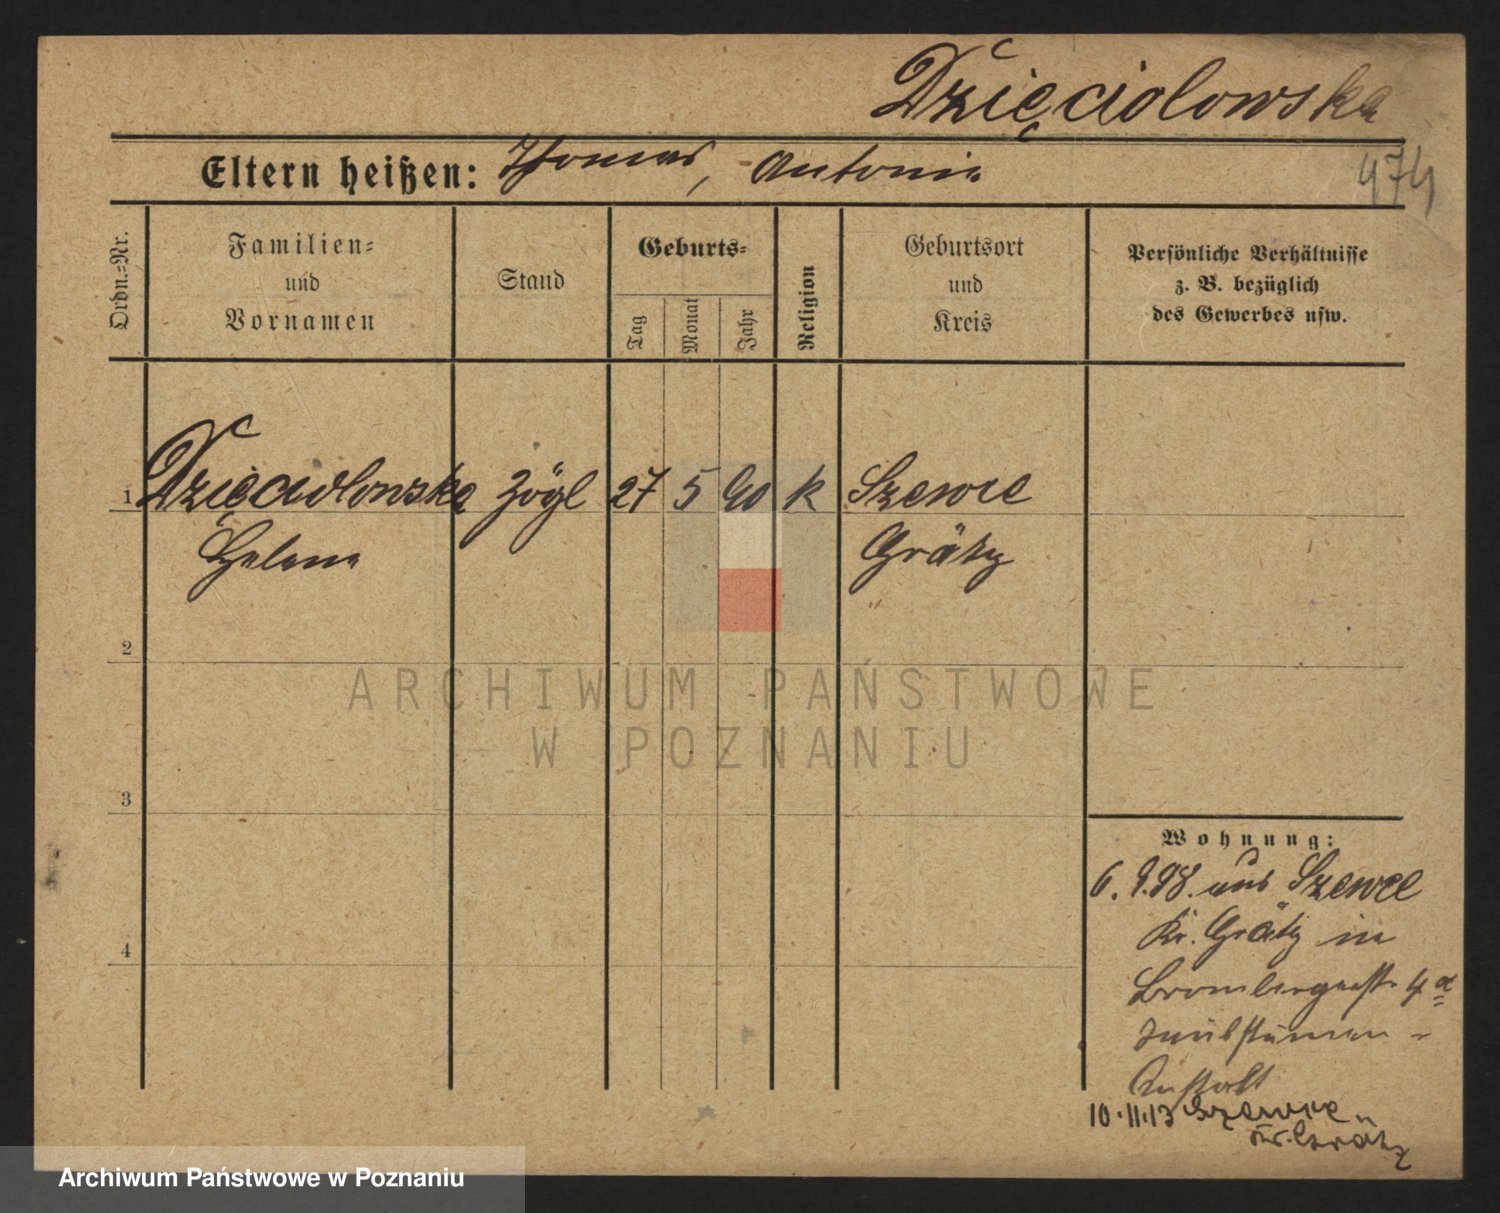 Dzięciolowska
474
Eltern heißen: Thomas, Antonie
Ordn.-Nr.
Familien-
und
Vornamen
Stand
Geburts-
Tag
Monat
Jahr
Religion
Geburtsort
und
Kreis
Persönliche Verhältnisse
z. B. bezüglich
des Gewerbes usw.
1 Dzięciolowska Zögl 27 5 90 k Szewce
Helene Grätz
2
3
4
ARCHIWUM PAŃSTWOWE
W POZNANIU
Wohnung:
6. 9. 98. aus Szewce
Kr. Grätz in
Brombergerstr 4a
Taubstummen-
Anstalt
10.11.13 Szewce
Kr. Grätz
Archiwum Państwowe w Poznaniu